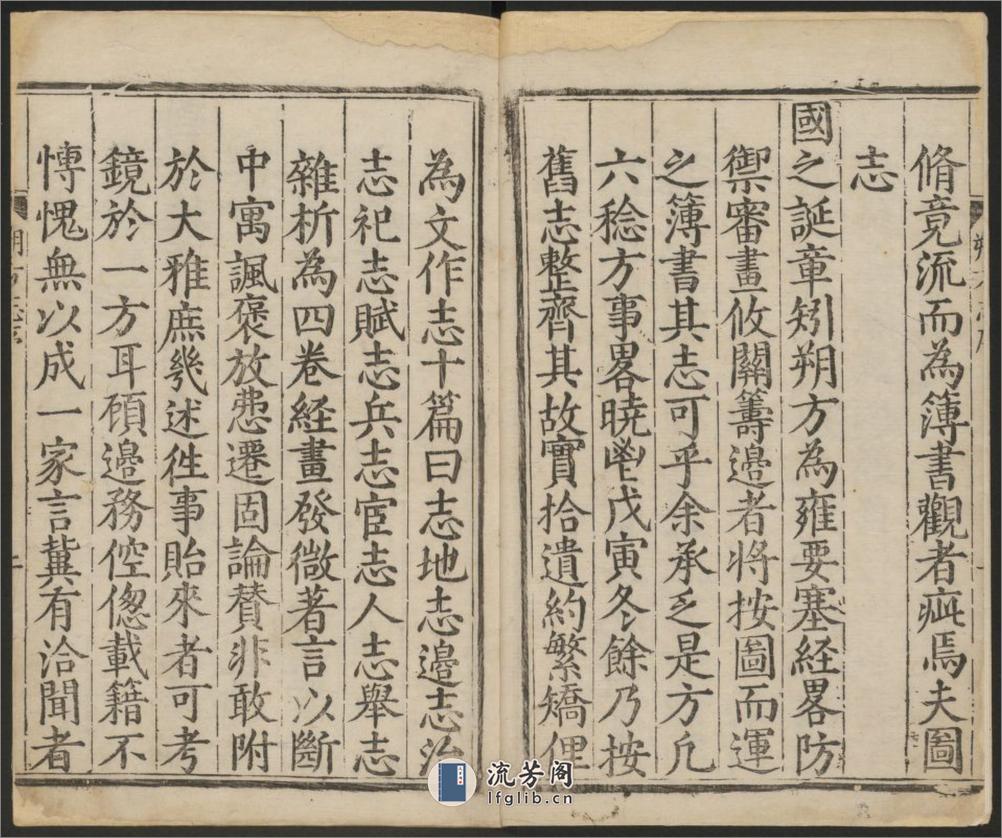 脩竟流而為簿書觀者疵焉夫圖
志
國之誕章矧朔方為雍要塞経畧防
禦審畫攸關籌邊者將按圖而運
之簿書其志可乎余承乏是方凢
六稔方事畧曉戊寅冬餘乃按
舊志整齊其故實拾遺約繁矯俚
為文作志十篇曰志地志邊志治
志祀志賦志兵志宦志人志舉志
雜析為四卷経畫發微著言以斷
中寓諷褒放悉遷固論賛非敢附
於大雅庶幾述徃事貽來者可考
鏡於一方耳碩邊務倥偬載籍不
慱愧無以成一家言冀有洽聞者
流芳阁
lfglib.cn